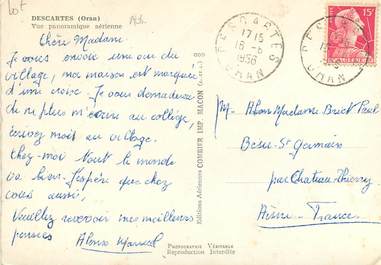 DESCARTES (Oran)
Vue panoramique aérienne
Chère Madame
Je vous envoie une vue du
village, ma maison est marquée
d'une croix. Je vous demanderai
de ne plus m'écrire au collège,
écrivez moi au village.
Chez moi tout le monde
va bien. J'espère que chez
vous aussi,
Veuillez recevoir mes meilleures
pensées
Alonso Marcel
Editions Aériennes COMBIER IMP. MACON
PHOTOGRAPHIE VÉRITABLE
Reproduction Interdite
DESCARTES
1715
18-6
1956
ORAN
DESCARTES
ORAN
15F
M- Madame Paul
Besu-St Germain
par Chateau-Thierry
Aisne - France